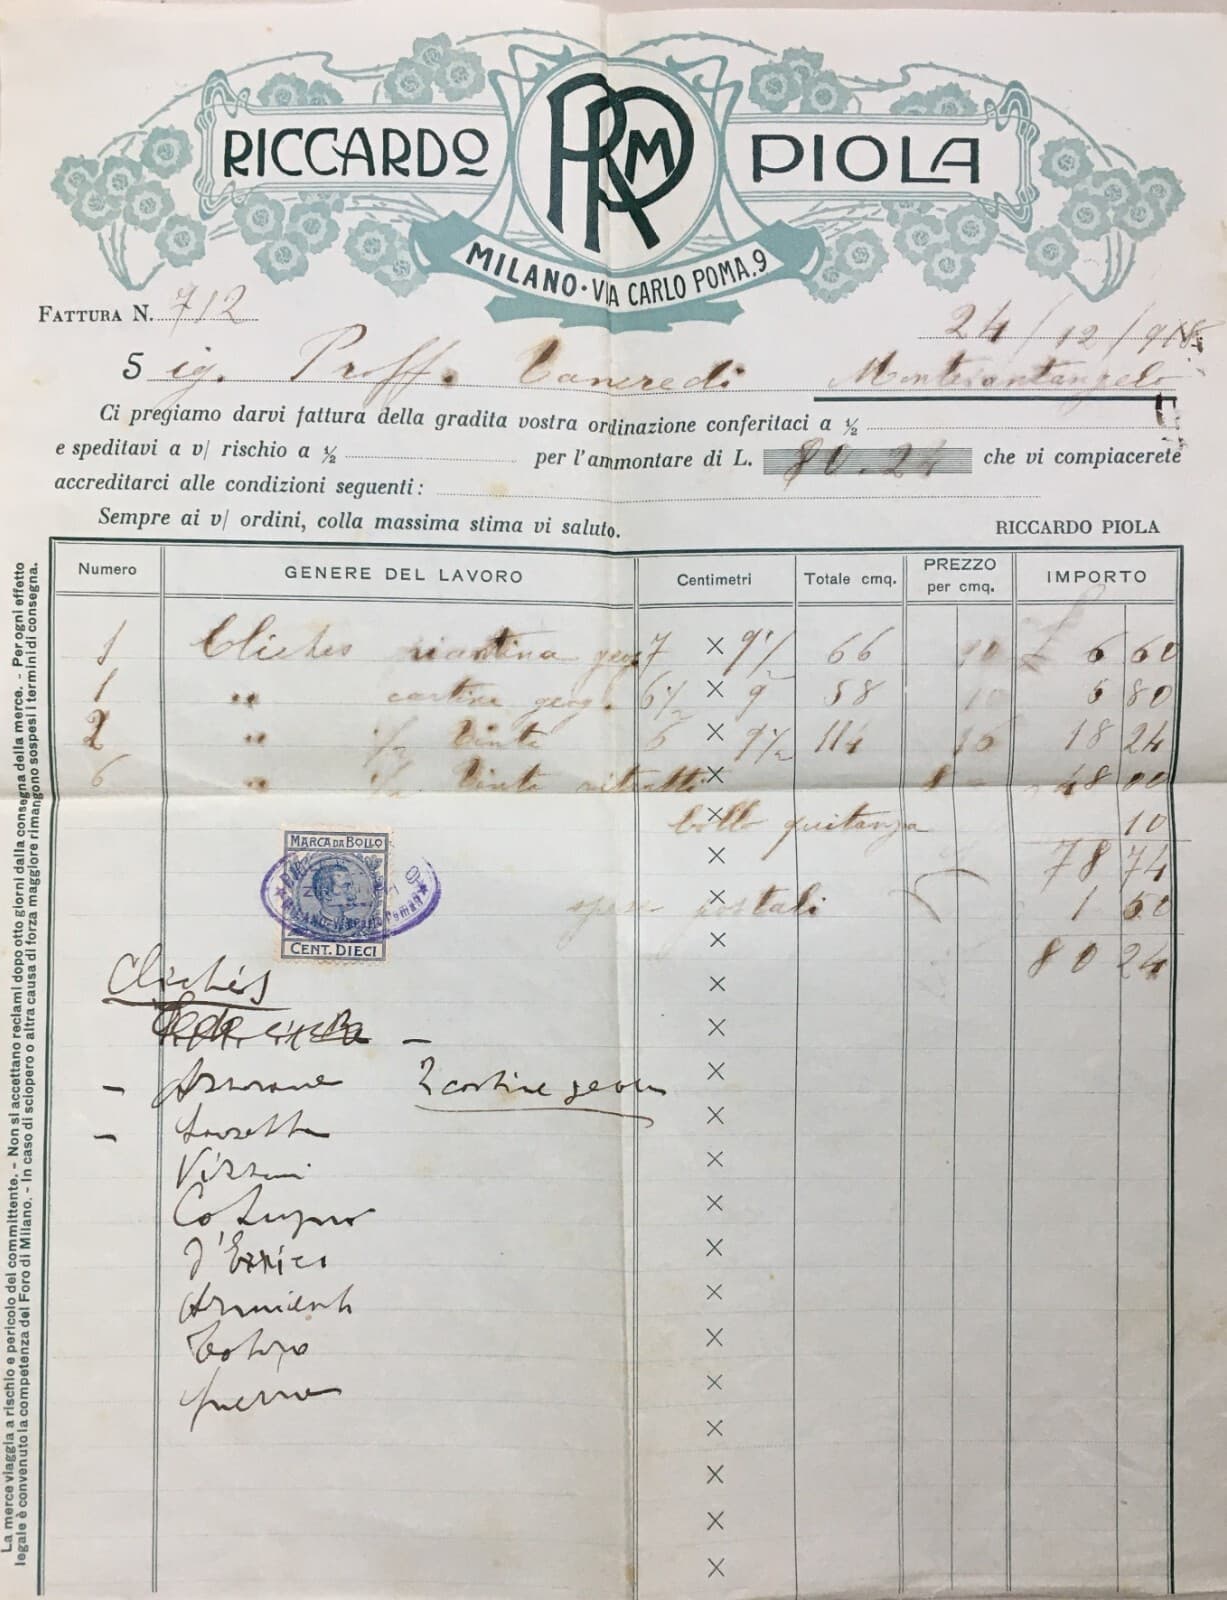 RICCARDO PRM PIOLA
MILANO · VIA CARLO POMA, 9
FATTURA N. 712
24/12/918
Sig. Proff. Tancredi Montesantangelo
Ci pregiamo darvi fattura della gradita vostra ordinazione conferitaci a ½
e speditavi a v/ rischio a ½ per l'ammontare di L. 80.24 che vi compiacerete
accreditarci alle condizioni seguenti:
Sempre ai v/ ordini, colla massima stima vi saluto.
RICCARDO PIOLA
Numero GENERE DEL LAVORO Centimetri Totale cmq. PREZZO per cmq. IMPORTO
1 Cliches geog. 7 × 9½ 66 10 £ 6 60
1 " cartina geog. 6½ × 9 58 10 5 80
2 " ½ tinta 6 × 9½ 114 16 18 24
6 " ½ tinta ritratti × 8 - 48 00
bollo quitanza 10
78 74
spese postali 1 50
80 24
MARCA DA BOLLO
CENT. DIECI
Clichés
2 cartine geog
Vizzini
Cotugno
d'Errico
Guerra
La merce viaggia a rischio e pericolo del committente. - Non si accettano reclami dopo otto giorni dalla consegna della merce. - Per ogni effetto
legale è convenuto la competenza del Foro di Milano. - In caso di sciopero o altra causa di forza maggiore rimangono sospesi i termini di consegna.